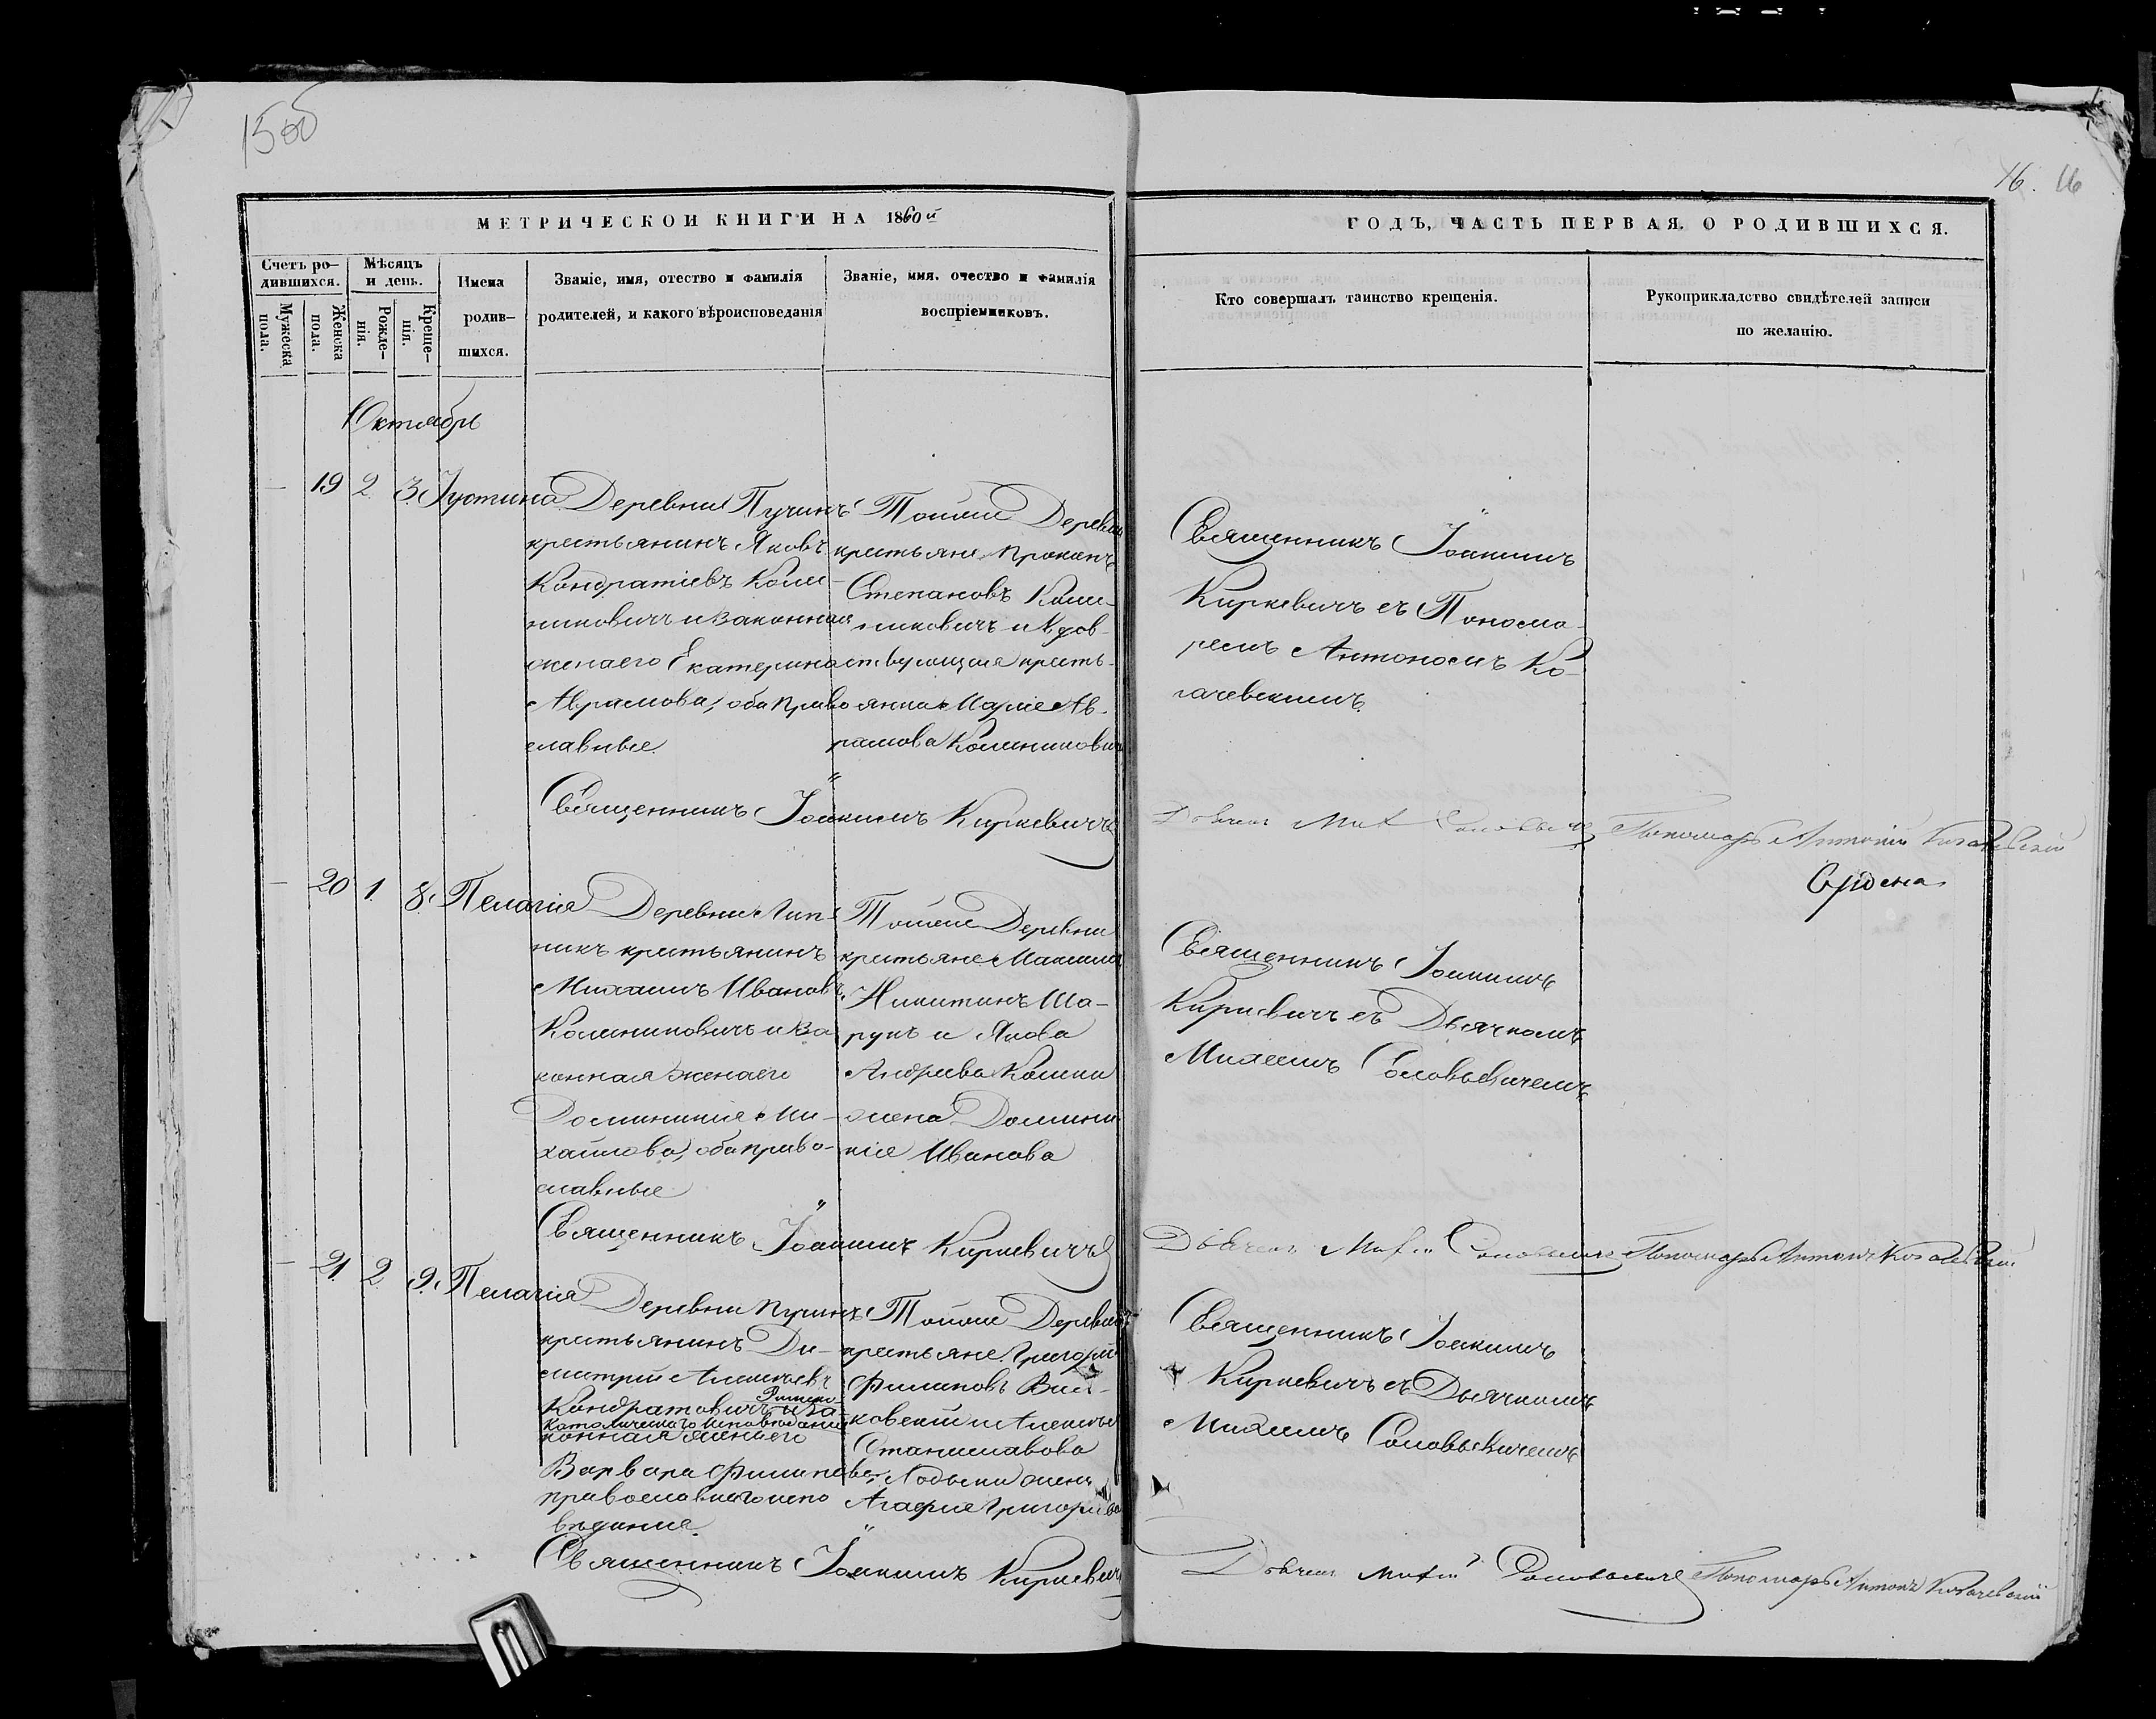 1500
16. 16
МЕТРИЧЕСКОЙ КНИГИ НА 1860й
ГОДЪ, ЧАСТЬ ПЕРВАЯ. О РОДИВШИХСЯ.
Счетъ ро-
дившихся.
Мужеска
пола.
Женска
пола.
Мѣсяцъ
и день.
Рожде-
нія.
Креще-
нія.
Имена
родив-
шихся.
Званіе, имя, отество и фамилія
родителей, и какого вѣроисповеданія
Званіе, имя. очество и фамилія
воспріемниковъ.
Кто совершалъ таинство крещенія.
Рукоприкладство свидѣтелей записи
по желанію.
Октябрь
— 19 2. 3. Іустина
Деревни Пучинъ
крестьянинъ Яковъ
Кондратіевъ Коли-
никовичъ и законная
жена его Екатерина
Аврамова, оба право
славные.
Тойже Деревни
крестьяне Прокопъ
Степановъ Коли-
никовичъ и Вдов-
ствующая кресть-
янка Марія Ав-
рамова Колиникович
Священникъ Іоакимъ
Киркевичъ съ Понома-
ремъ Антономъ Ко-
гачевскимъ.
Священникъ Іоакимъ Киркевичъ
Пономарь Антоній
— 20 1. 8. Пелагія
Деревни Лип-
никъ крестьянинъ
Михаилъ Ивановъ
Колиниковичъ и за
конная жена его
Доминикія Ми-
хайлова, оба право-
славные
Тойже Деревни
крестьяне Максимъ
Никитинъ Ша-
рукъ и Якова
Андреева
жена Домини
кія Иванова
Священникъ Іоакимъ
Киркевичъ съ Дьячкомъ
Михаиломъ Соловьевичемъ
Священникъ Іоакимъ Киркевичъ
Пономарь Антонъ
— 21 2. 9. Пелагія
Деревни Пучинъ
крестьянинъ Ди-
митрій Алексѣевъ
Кондратовичъ Римско
католическаго исповѣданія и за-
конная жена его
Варвара Филипова
православнаго испо
вѣданія.
Тойже Деревни
крестьяне Григорій
Филиповъ
ковскій и Алексѣя
Станиславова
жена
Агафія Григорьева
Священникъ Іоакимъ
Киркевичъ съ Дьячкомъ
Михаиломъ Соловьевичемъ
Священникъ Іоакимъ Киркевичъ
Пономарь Антонъ